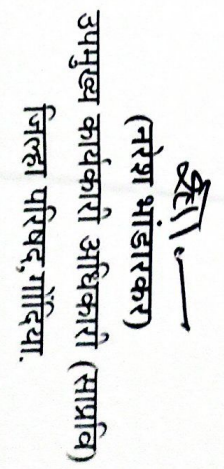 (नरेश भांडारकर)
उपमुख्य कार्यकारी अधिकारी (साप्रवि)
जिल्हा परिषद,गोंदिया.